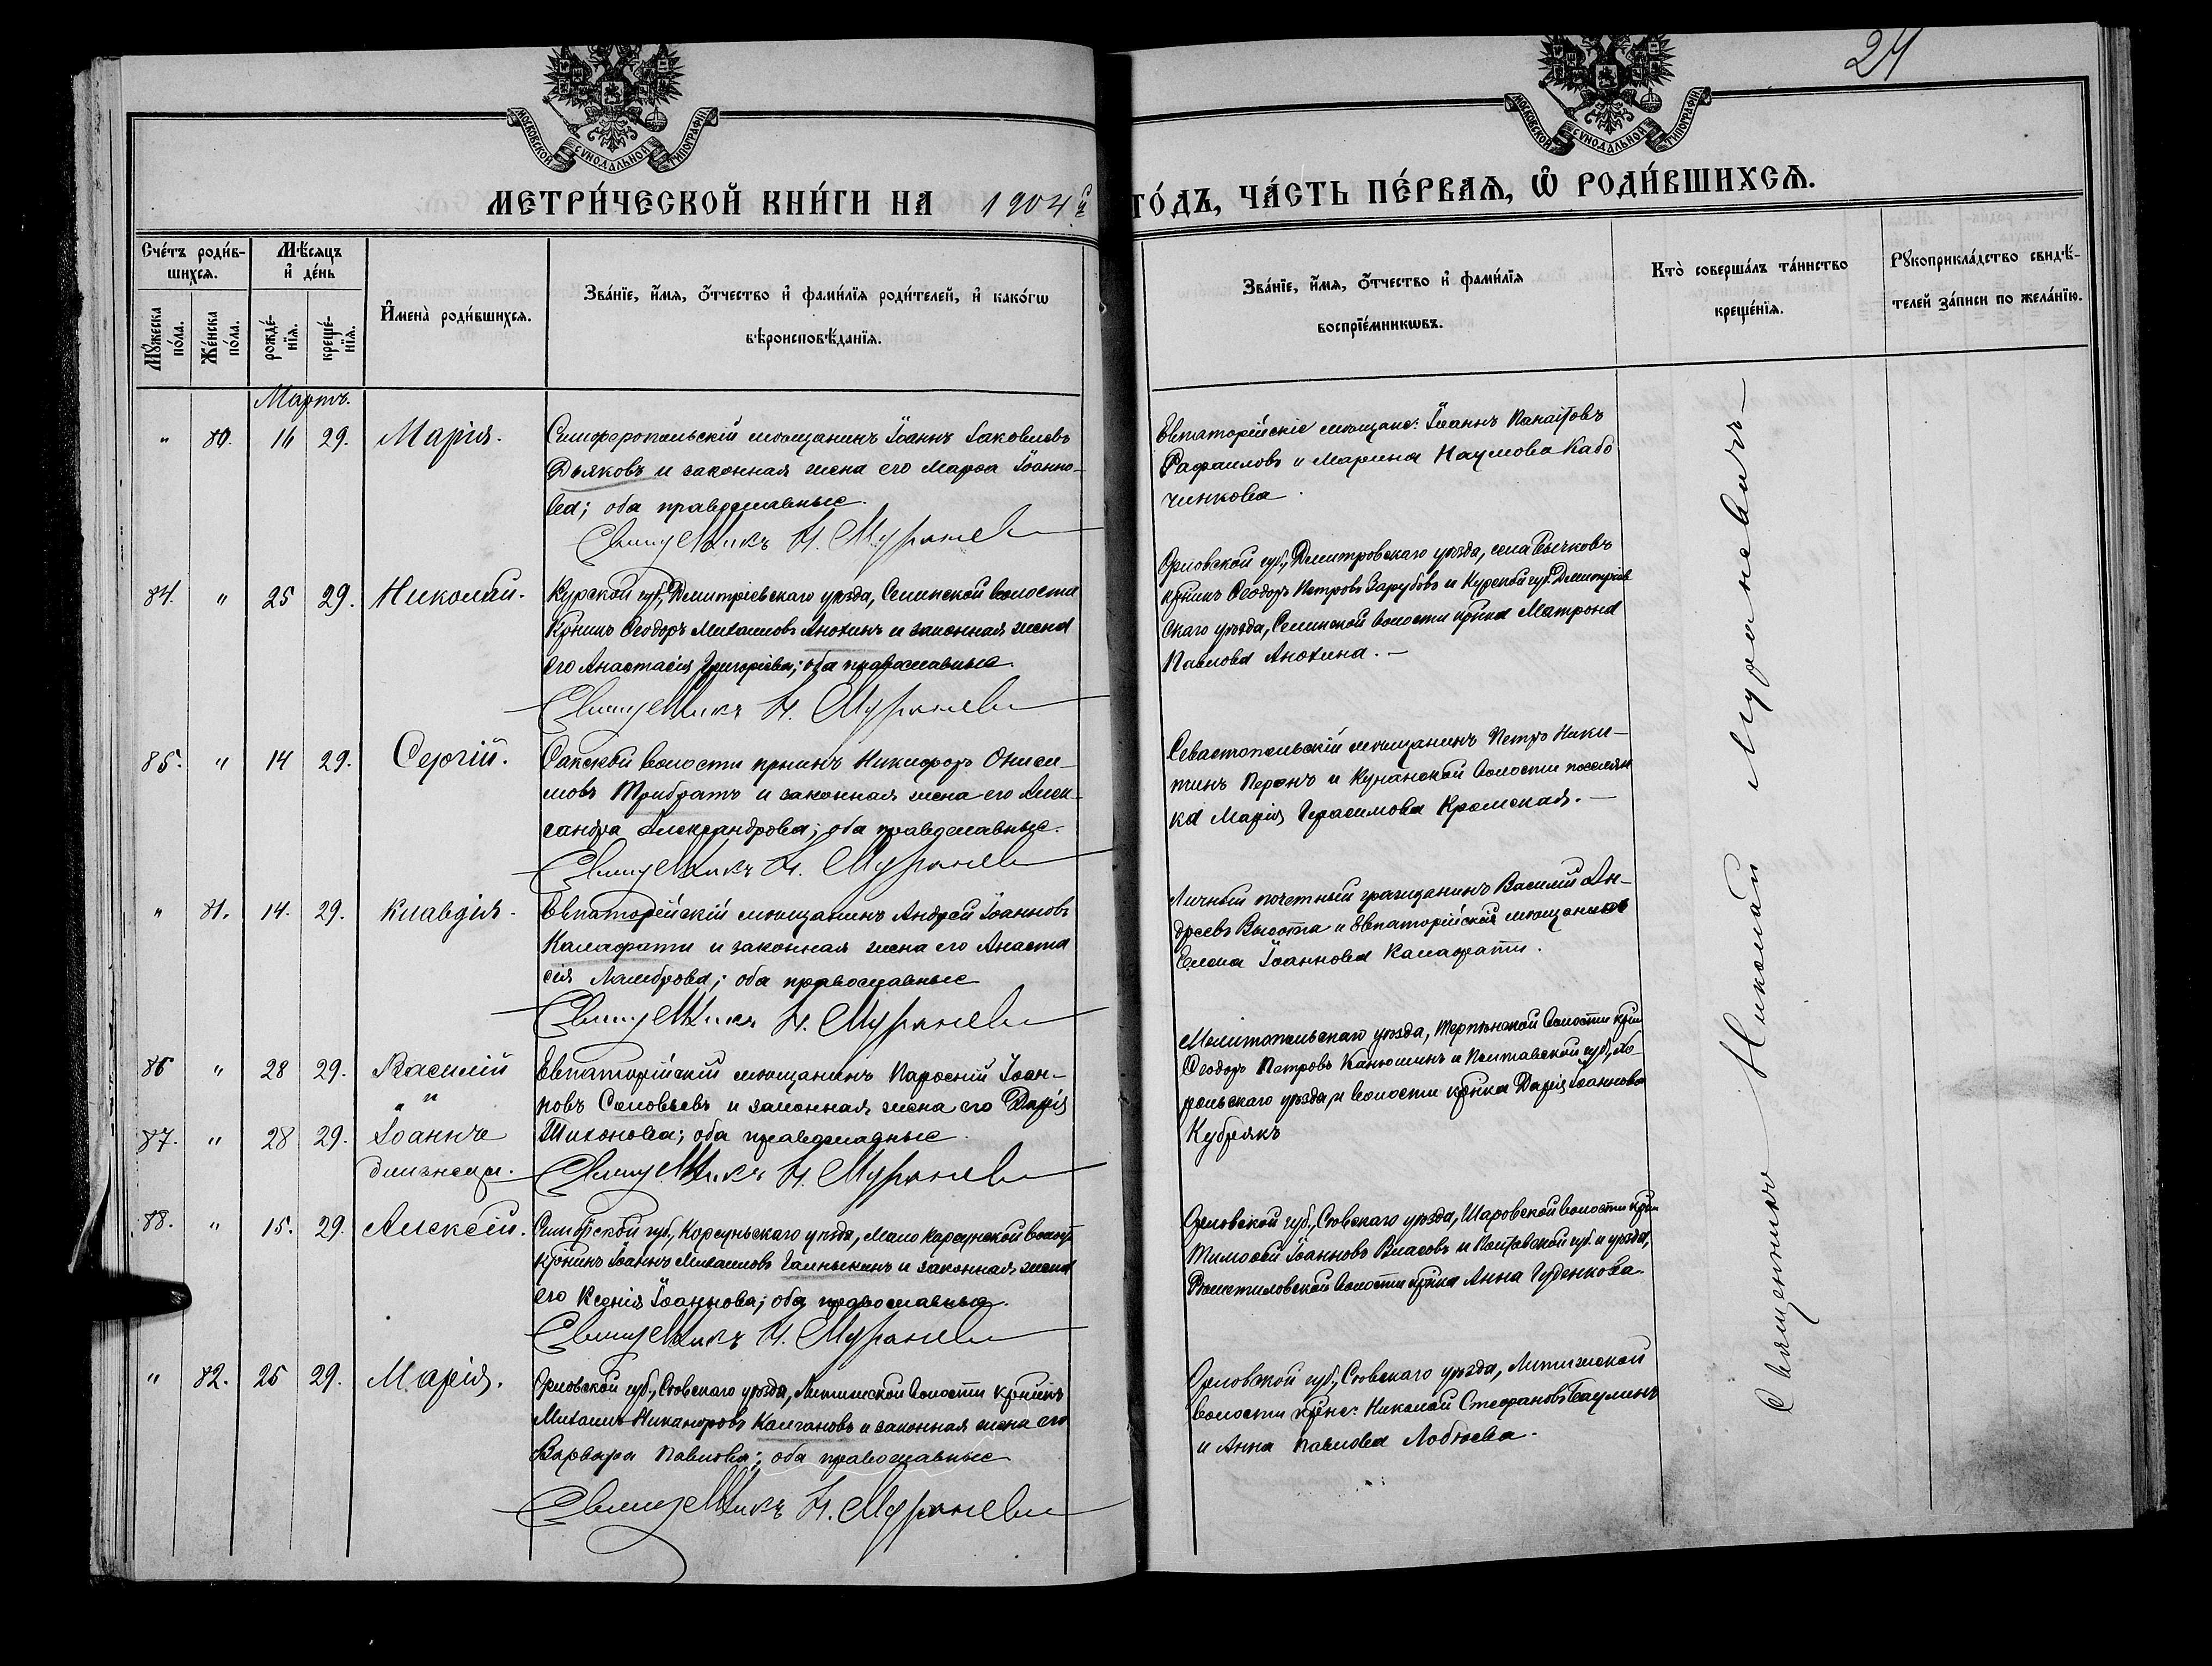 24
МОСКОВСКОЙ СѴНОДАЛЬНОЙ ТИПОГРАФІИ
МОСКОВСКОЙ СѴНОДАЛЬНОЙ ТИПОГРАФІИ
МЕТРИ́ЧЕСКОЙ КНИ́ГИ НА 1904 й ГО́ДЪ, ЧА́СТЬ ПЕ́РВАѦ, Ѿ РОДИ́ВШИХСѦ.
Сче́тъ роди́в-
шихсѧ.
Мꙋ́жеска по́ла.
Же́нска по́ла.
Мѣ́сѧцъ
и҆ де́нь
рожде́-
нїѧ.
креще́-
нїѧ.
И҆мена̀ роди́вшихсѧ.
Зва́нїе, и҆́мѧ, ѻ҆́тчество и҆ фами́лїѧ роди́телей, и҆ како́гѡ
вѣроисповѣ́данїѧ.
Зва́нїе, и҆́мѧ, ѻ҆́тчество и҆ фами́лїѧ
воспрїе́мникѡвъ.
Кто̀ соверша́лъ та́инство
креще́нїѧ.
Рꙋкоприкла́дство свидѣ́-
телей за́писи по жела́нїю.
Мартъ.
" 80. 16 29. Марія.
Симферопольскій мѣщанинъ Іоаннъ Іаковлевъ
Дьяковъ и законная жена его Марѳа Іоанно-
ва; оба православные.
Священникъ Н. Мураневичъ
Евпаторійскіе мѣщане: Іоаннъ Панаітовъ
Рафаиловъ и Марина Наумова Кабо
чинкова.
84. " 25 29. Николай.
Курской губ., Дмитріевскаго уѣзда, Селинской волости
крнинъ Ѳеодоръ Михаиловъ Анохинъ и законная жена
его Анастасія Григоріева; оба православные
Священникъ Н. Мураневичъ
Орловской губ., Дмитровскаго уѣзда, села Бычковъ
крнинъ Ѳеодоръ Петровъ Зарубовъ и Курской губ. Дмитріев
скаго уѣзда, Селинской волости крнка Матрона
Павлова Анохина. —
85. " 14 29. Сергій.
Сакской волости крнинъ Никифоръ Ониси-
мовъ Трибратъ и законная жена его Алек-
сандра Александрова; оба православные.
Священникъ Н. Мураневичъ
Севастопольскій мѣщанинъ Петръ Ники-
тинъ Перонъ и Кунанской волости поселян
ка Марія Герасимова Кромская. —
" 81. 14. 29. Клавдія.
Евпаторійскій мѣщанинъ Андрей Іоанновъ
Калафати и законная жена его Анаста
сія Ламброва; оба православные
Священникъ Н. Мураневичъ
Личный почетный гражданинъ Василій Ан-
дреевъ Высота и Евпаторійская мѣщанка
Елена Іоаннова Калафати.
86 " 28 29. Василій
" "
87. " 28 29. Іоаннъ
близнецы.
Евпаторійскій мѣщанинъ Парѳеній Іоан-
новъ Соловьевъ и законная жена его Дарія
Тихонова; оба православные.
Священникъ Н. Мураневичъ
Мелитопольскаго уѣзда, Терпѣнской волости крнин
Ѳеодоръ Петровъ Канюшинъ и Полтавской губ., Хо-
рольскаго уѣзда, и волости крнка Дарія Іоаннова
Кубрякъ
88. " 15. 29. Алексѣй.
Симбірской губ., Корсунскаго уѣзда, Мало Карсунской волост
крнинъ Іоаннъ Михаиловъ Галныкинъ и законная жена
его Ксенія Іоаннова; оба православные.
Священникъ Н. Мураневичъ
Орловской губ., Сѣвскаго уѣзда, Шаровской волости крнин
Тимоѳей Іоанновъ Власовъ и Полтавской губ. и уѣзда,
Рѣшетиловской волости крнка Анна Гуденкова.
" 82. 25 29. Марія.
Орловской губ., Сѣвскаго уѣзда, Литижской волости крнинъ
Михаилъ Никаноровъ Колгановъ и законная жена его
Варвара Павлова; оба православные
Священникъ Н. Мураневичъ
Орловской губ., Сѣвскаго уѣзда, Литижской
волости крне: Николай Стефановъ Баулинъ
и Анна Павлова Лобзева.
Священникъ Николай Мураневичъ —